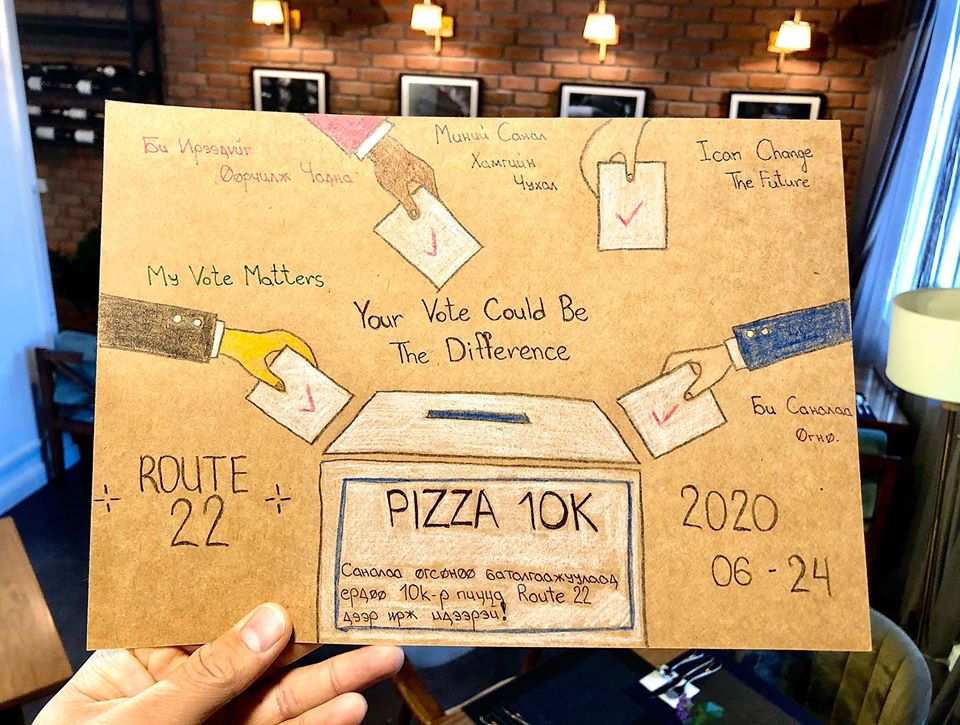 Би Ирээдүйг
Өөрчилж Чадна
Миний Санал
Хамгийн
Чухал
I can Change
The Future
My Vote Matters
Your Vote Could Be
The Difference
Би Саналаа
Өгнө.
ROUTE
22
PIZZA 10K
Саналаа өгсөнөө баталгаажуулаад
ердөө 10к-р пицца Route 22
дээр ирж идээрэй!
2020
06-24